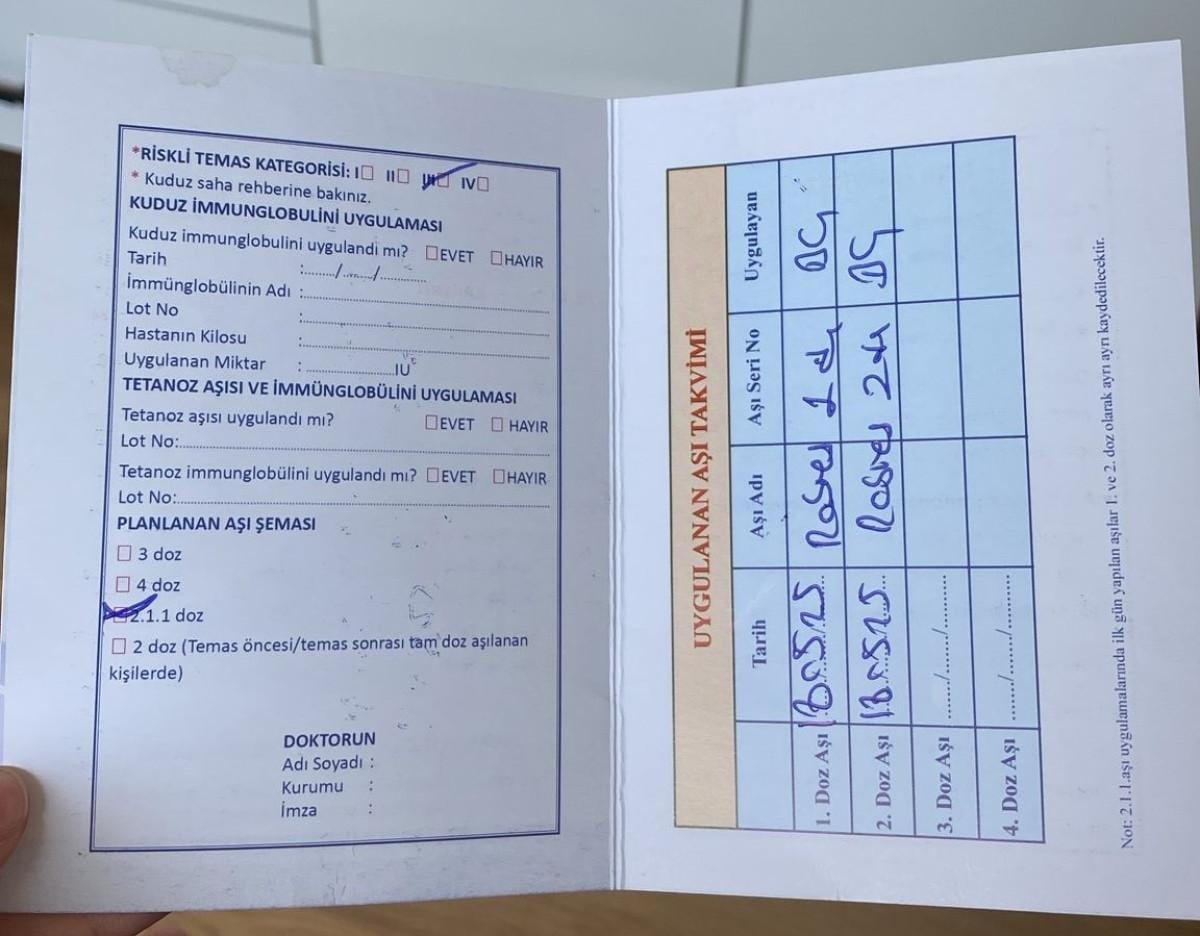 *RİSKLİ TEMAS KATEGORİSİ: I☐ II☐ III☐ IV☐
* Kuduz saha rehberine bakınız.
KUDUZ İMMUNGLOBULİNİ UYGULAMASI
Kuduz immunglobulini uygulandı mı? ☐EVET ☐HAYIR
Tarih :......../......../..........
İmmünglobülinin Adı :
Lot No :
Hastanın Kilosu :
Uygulanan Miktar : ....................IU
TETANOZ AŞISI VE İMMÜNGLOBÜLİNİ UYGULAMASI
Tetanoz aşısı uygulandı mı? ☐EVET ☐ HAYIR
Lot No:
Tetanoz immunglobülini uygulandı mı? ☐EVET ☐HAYIR
Lot No:
PLANLANAN AŞI ŞEMASI
☐ 3 doz
☐ 4 doz
☐2.1.1 doz
☐ 2 doz (Temas öncesi/temas sonrası tam doz aşılanan
kişilerde)
DOKTORUN
Adı Soyadı :
Kurumu :
İmza :
UYGULANAN AŞI TAKVİMİ
Tarih Aşı Adı Aşı Seri No Uygulayan
1. Doz Aşı
2. Doz Aşı
3. Doz Aşı ....../....../..........
4. Doz Aşı ....../....../..........
Not: 2.1.1.aşı uygulamalarında ilk gün yapılan aşılar 1. ve 2. doz olarak ayrı ayrı kaydedilecektir.